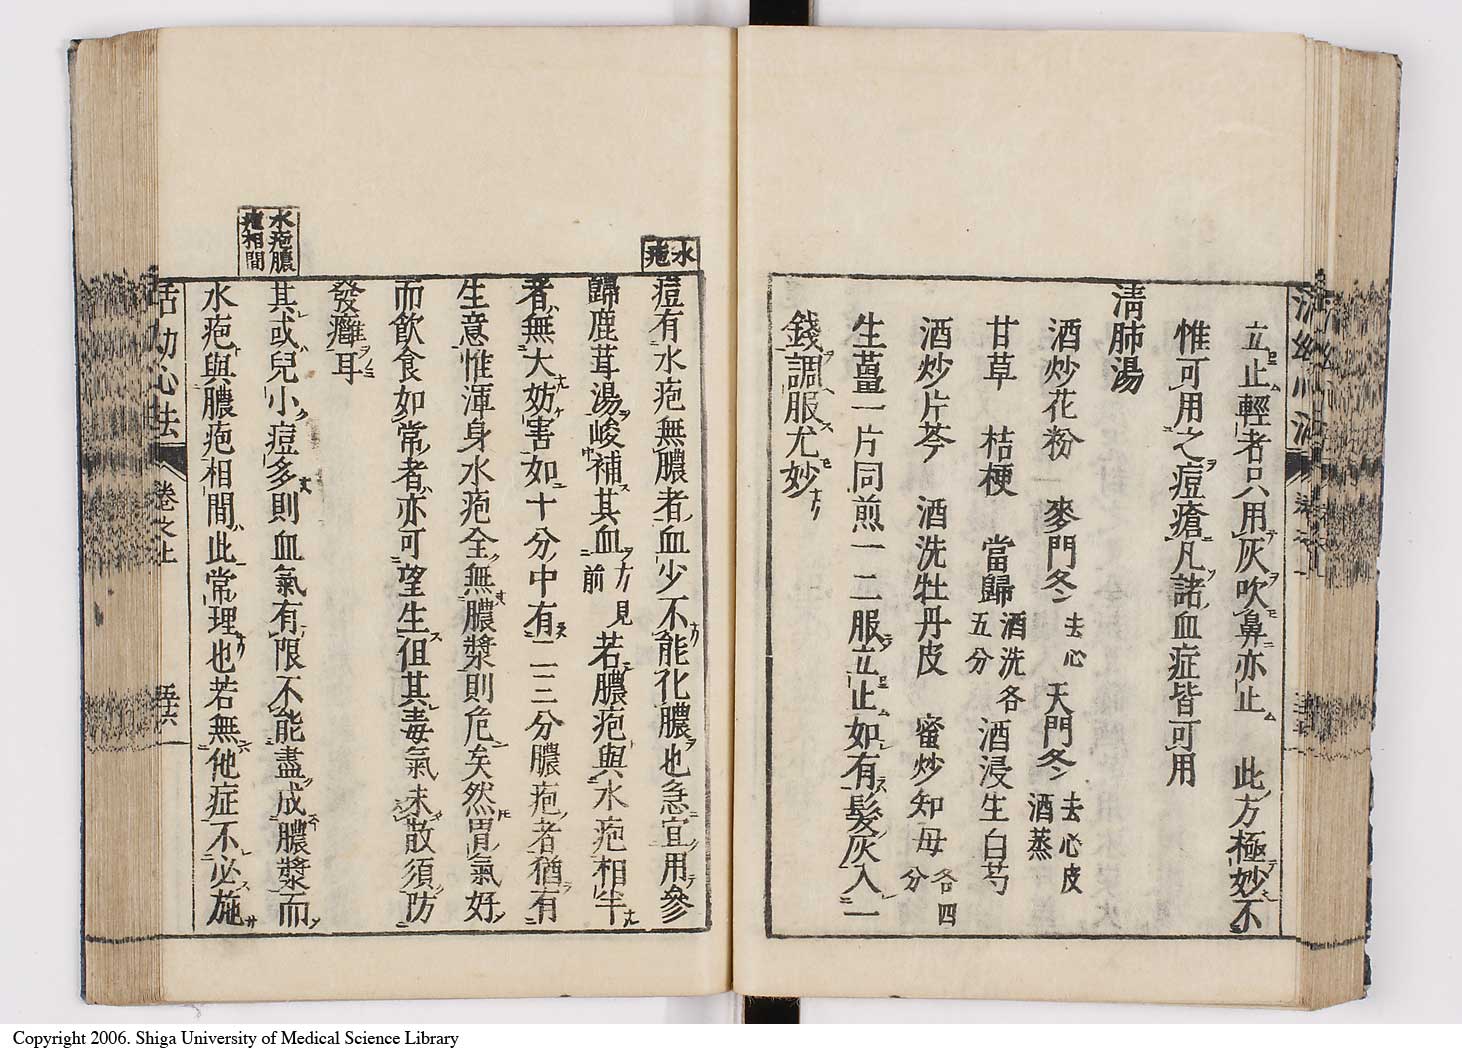 立止輕者只用灰吹鼻亦止 此方極妙不
惟可用之痘瘡凡諸血症皆可用
清肺湯
酒炒花粉 麥門冬去心 天門冬去心皮酒蒸
甘草 桔梗 當歸酒洗各五分 酒浸生白芍
酒炒片芩 酒洗牡丹皮 蜜炒知母各四分
生薑一片同煎一二服立止如有髮灰入一
錢調服尤妙
水疱
痘有水疱無膿者血少不能化膿也急宜用參
歸鹿茸湯峻補其血方見前若膿疱與水疱相半
者無大妨害如十分中有二三分膿疱者猶有
生意惟渾身水疱全無膿漿則危矣然胃氣好
而飲食如常者亦可望生但其毒氣未散須防
發癰耳
水疱膿疱相間
其或兒小痘多則血氣有限不能盡成膿漿而
水疱與膿疱相間此常理也若無他症不必施
活幼心法 卷之上
Copyright 2006. Shiga University of Medical Science Library